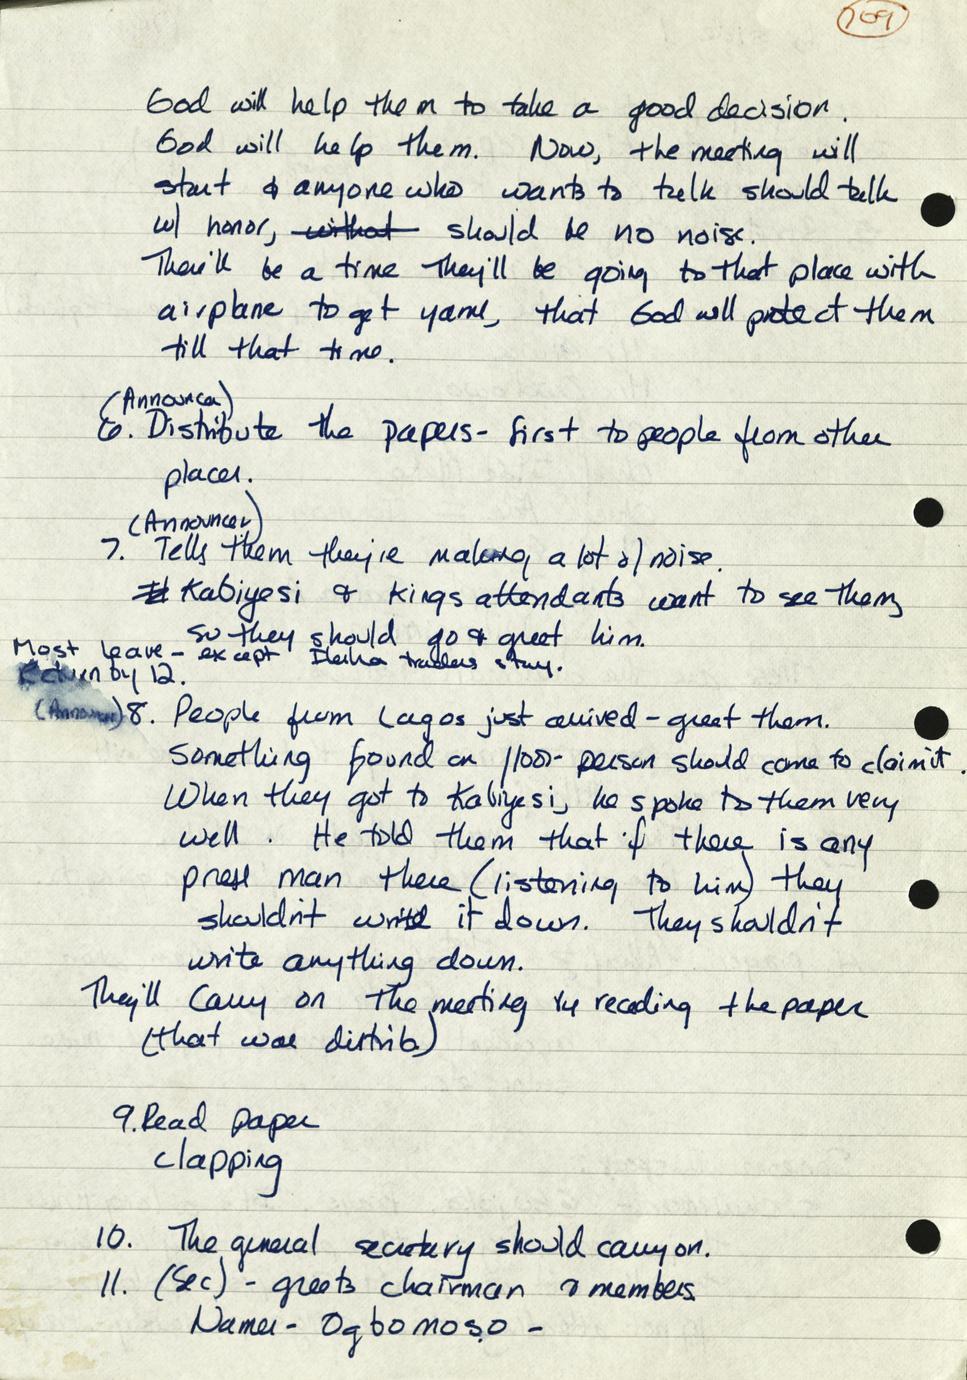 109
God will help them to take a good decision.
God will help them. Now, the meeting will
start & anyone who wants to talk should talk
w/ honor, without should be no noise.
There'll be a time they'll be going to that place with
airplane to get yams, that God will protect them
till that time.
(Announcer)
6. Distribute the papers - first to people from other
places.
(Announcer)
7. Tells them they're making a lot of noise.
Kabiyesi & Kings attendants want to see them,
so they should go & greet him.
Most leave - except traders stay.
Return by 12.
(Announcer) 8. People from Lagos just arrived - greet them.
Something found on person should come to claim it.
When they got to Kabiyesi, he spoke to them very
well. He told them that if there is any
press man there (listening to him) they
shouldn't write it down. They shouldn't
write anything down.
They'll carry on the meeting by reading the paper
(that was distrib)
9. Read paper
clapping
10. The general secretary should carry on.
11. (Sec) - greets chairman & members
Names - Ogbomoso -